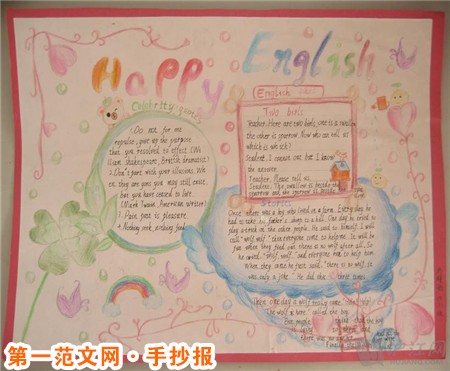 Happy English
Celebrity quotes
1. Do not, for one
repulse, give up the purpose
that you resolved to effect. (Wi
lliam Shakespeare, British dramatist)
2. Don't part with your illusions. Wh
en they are gone you may still exist,
but you have ceased to live.
(Mark Twain, American writer)
3. Pain past is pleasure.
4. Nothing seek, nothing find.
English
Two birds
Teacher: Here are two birds, one is a swallow
the other is sparrow. Now who can tell us
which is which?
Student: I cannot but I know
the answer.
Teacher: Please tell us.
Student: The swallow is beside the
sparrow and the sparrow is beside the
Stories
Once there was a boy who lived on a farm. Every day he
had to take his father's sheep to a hill. One day he
play a trick on the other people. He said to himself. I will
call "wolf, wolf" then everyone come to help me. It will be
fun when they find out there is no wolf after all. So
he called "Wolf, wolf" and everyone ran to help him.
When they came he just said, "there is no wolf. It
was only a joke." He did the three times.
Then one day a wolf really came.
The wolf is here" called the boy.
But people
第一范文网·手抄报